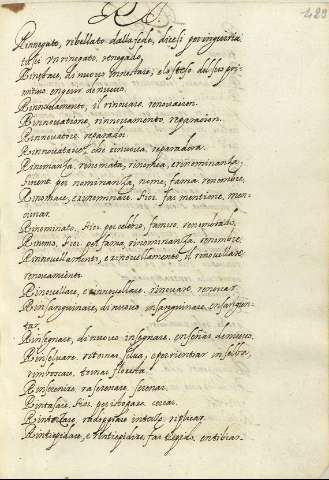 R I.
423
Rinnegato, ribellato dalla fede, dicesi per ingiuria
tu sei un rinegato, renegado
Rinestare, di nuovo innestare, e lo stesso del suo pri-
mitivo engerir de nuevo.
Rinnovamento, il rinovare, renovacion.
Rinnovatione, rinnovamento, reparacion.
Rinnovatore, reparador.
Rinnovatrice, che rinnova, reparadora.
Rinomanza, rinomata, rinomea, e rinominanza,
per nominanza, nome, fama, renombre.
Rinomare, e rinominare. Fior. far mentione, men-
cionar.
Rinominato. Fior. per celebre, famoso, renombrado.
Rinomo, Fior. per fama, rinominanza, renombre.
Rinnovellamento, e rinovellamento, il rinovellare,
renovamiento.
Rinovellare, e rinnovellare, rinovare, renovar.
Rinsanguinare, di nuovo insanguinare, ensangren-
tar.
Rinsegnare, di nuovo insegnare, enseñar de nuevo.
Rinselvare, ritornar selva, e per rientrar in selva,
rimboscare, tornar floresta.
Rinserenire, rasserenare, serenar.
Rintasare, Fior. per istoppare, cerrar.
Rintoccare, raddoppiare i tocchi, replicar.
Rintiepidare, e rintiepidire, far tiepido, entibiar.